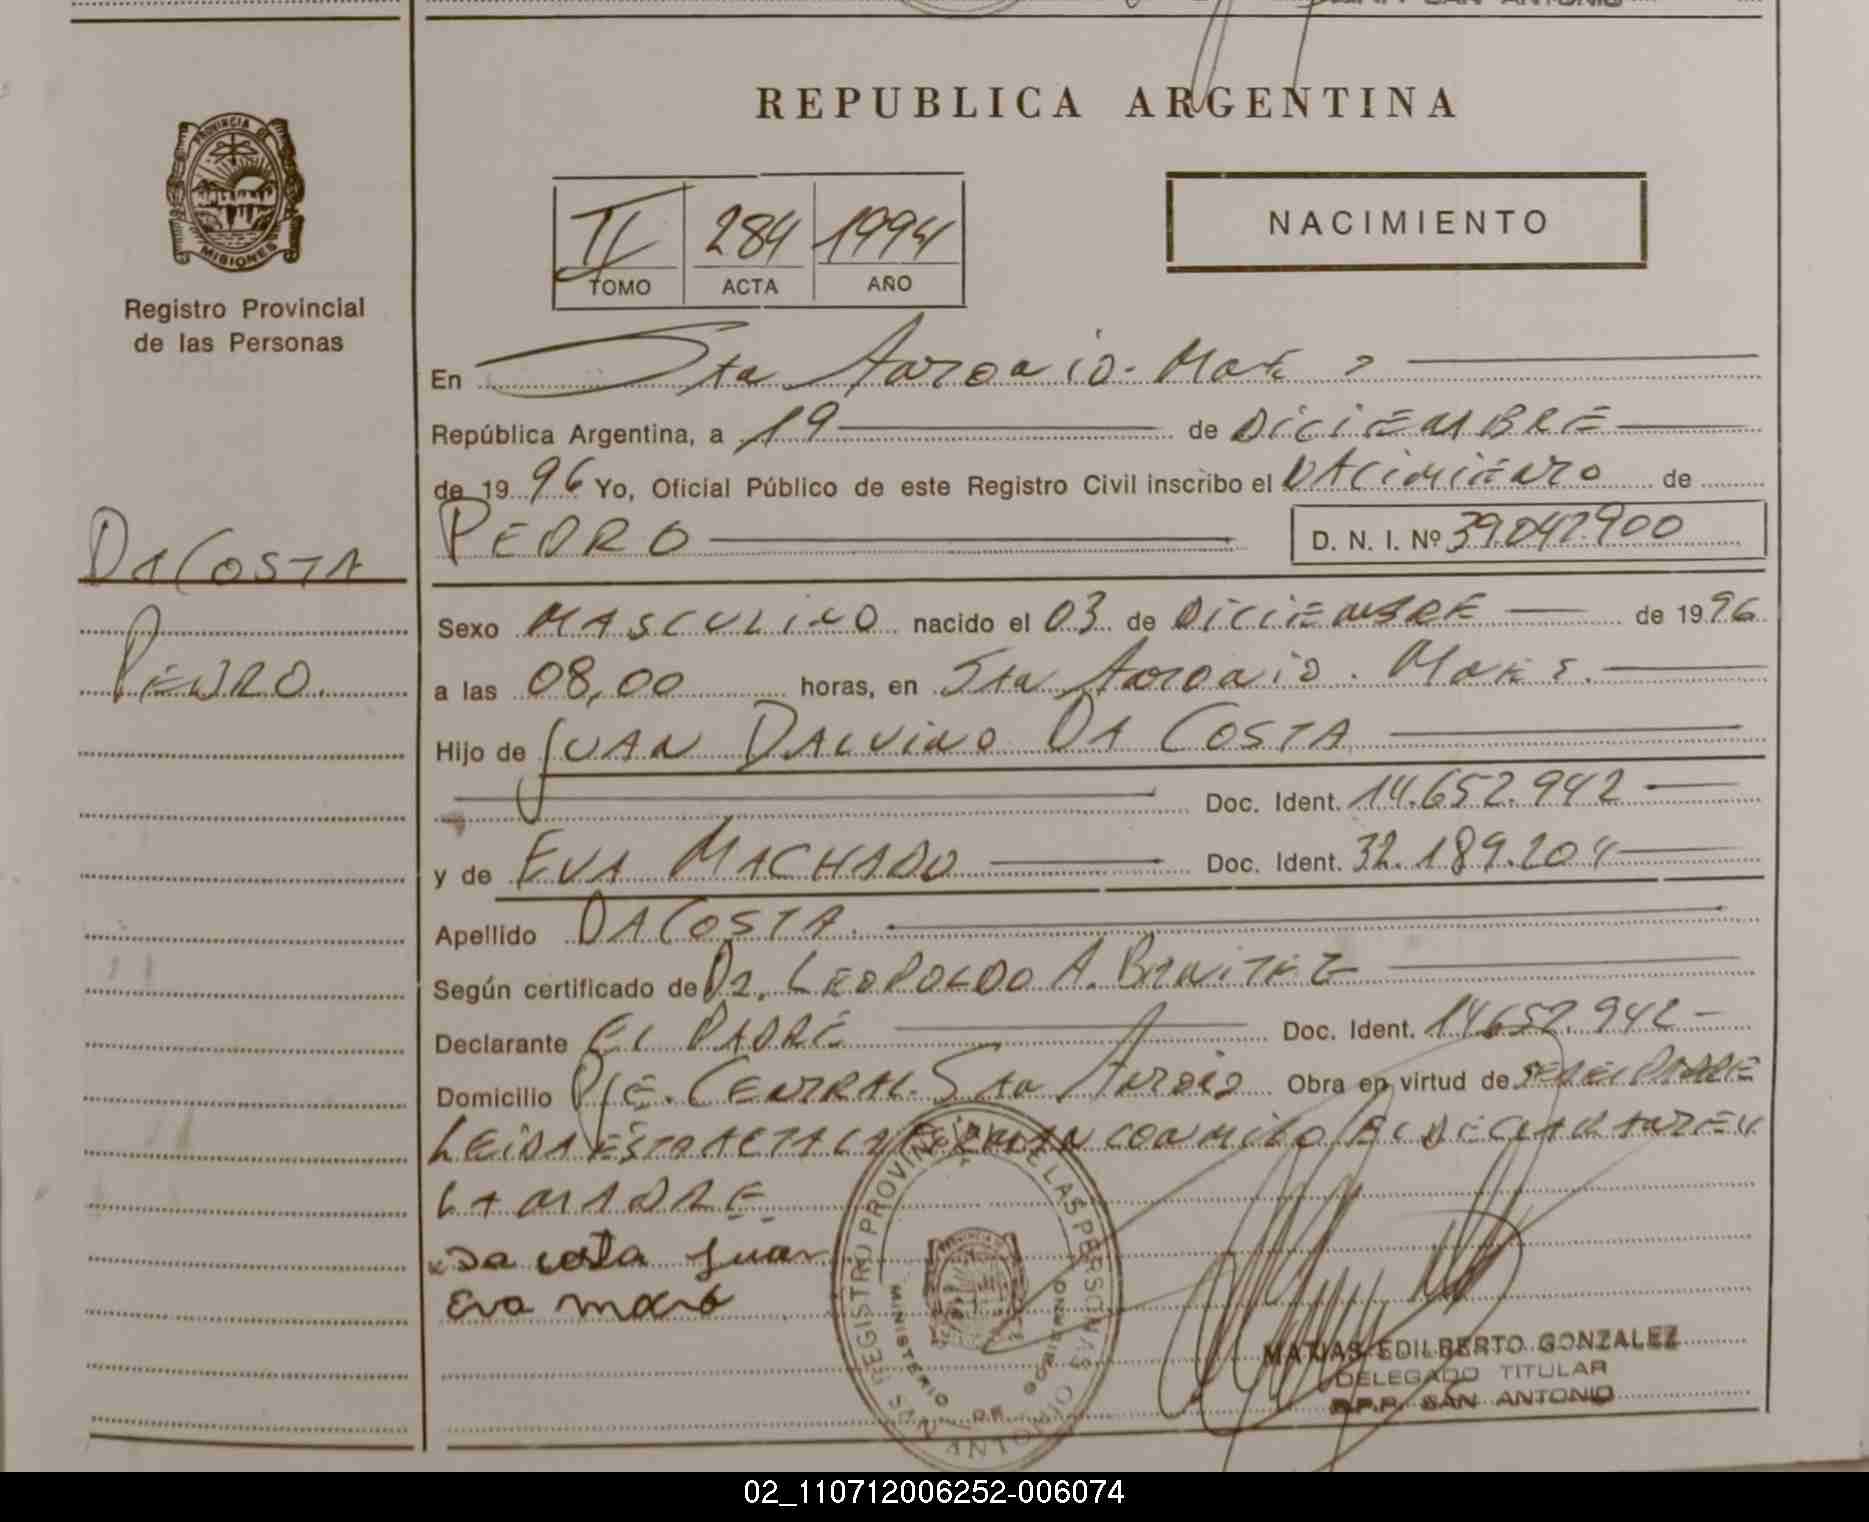 REPUBLICA ARGENTINA
PROVINCIA DE
MISIONES
Registro Provincial
de las Personas
NACIMIENTO
II 284 1994
TOMO ACTA AÑO
En Sta Antonio - Mnes
República Argentina, a 19 de DICIEMBRE
de 1996 Yo, Oficial Público de este Registro Civil inscribo el NACIMIENTO de
PEDRO D. N. I. Nº 39.042.900
DA COSTA
PEDRO
Sexo MASCULINO nacido el 03 de DICIEMBRE de 1996
a las 08,00 horas, en Sta Antonio - Mnes.
Hijo de JUAN DALVINO DA COSTA
Doc. Ident. 14.652.942
y de EVA MACHADO Doc. Ident. 32.189.204
Apellido DA COSTA.
Según certificado de Dr. LEOPOLDO A. BENITEZ
Declarante EL PADRE Doc. Ident. 14.652.942
Domicilio PJE. CENTRAL - Sta Antonio Obra en virtud de SER EL PADRE
LEIDA ESTA ACTA LA FIRMAN CONMIGO EL DECLARANTE Y
LA MADRE.
Da costa Juan
Eva
REGISTRO PROVINCIAL DE LAS PERSONAS
MINISTERIO DE GOBIERNO
SAN ANTONIO
MATIAS EDILBERTO GONZALEZ
DELEGADO TITULAR
R.P.P. SAN ANTONIO
02_110712006252-006074